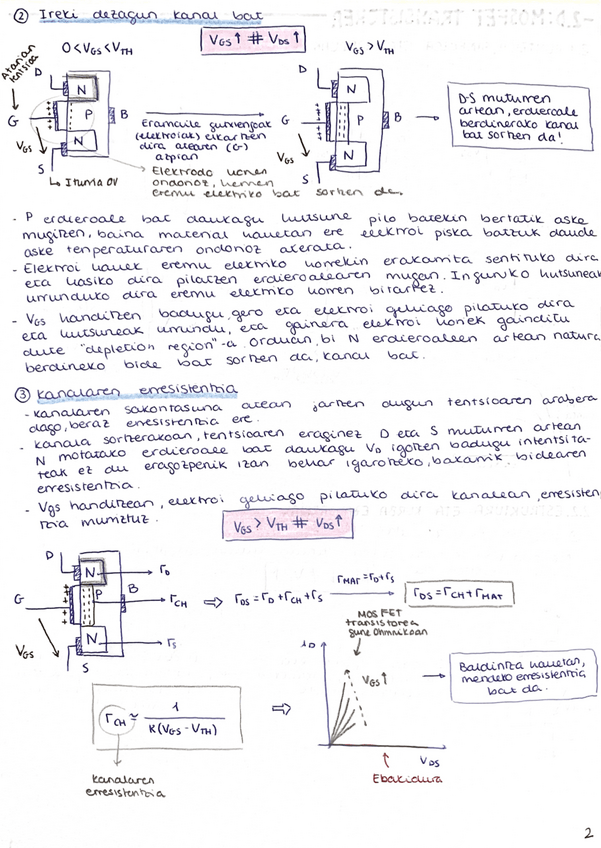 ② Ireki dezagun kanal bat
Atarian tentsioa
0 < VGS < VTH
VGS↑ # VDS↑
VGS > VTH
D
N
P
B
G
VGS
N
S
↳ Iturria 0V
Eramaile gutxiengoak
(elektroiak) elkartzen
dira atearen (G)
azpian
→ Elektrodo honen
ondorioz, hemen
eremu elektriko bat sortzen da.
D
N
P
B
G
VGS
N
S
D-S muturren
artean, erdieroale
berdinerako kanal
bat sortzen da!
- P erdieroale bat daukagu hutsune pilo batekin bertatik aske
mugitzen, baina material hauetan ere elektroi piska batzuk daude
aske tenperaturaren ondorioz aterata.
- Elektroi hauek eremu elektriko horrekin erakarrita sentituko dira
eta hasiko dira pilatzen erdieroalearen mugan. Inguruko hutsuneak
urrunduko dira eremu elektriko horren bitartez.
- VGS handitzen badugu, gero eta elektroi gehiago pilatuko dira
eta hutsuneak urrundu, eta gainera elektroi honek gainditu
dute "depletion region"-a. Orduan, bi N erdieroaleen artean natura
berdineko bide bat sortzen da, kanal bat.
③ Kanalaren erresistentzia
- Kanalaren sakontasuna atean jartzen dugun tentsioaren arabera
dago, beraz erresistentzia ere.
- Kanala sortzerakoan, tentsioaren eraginez D eta S muturren artean
N motatako erdieroale bat daukagu. VD igotzen badugu intentsita-
teak ez du eragozpenik izan behar igarotzeko, bakarrik bidearen
erresistentzia.
- VGS handitzean, elektroi gehiago pilatuko dira kanalean, erresisten
tzia murriztuz.
VGS > VTH # VDS↑
D
N
P
B
G
VGS
N
S
rD
rCH
rS
⇒ rDS = rD + rCH + rS
rMAT = rD + rS
rDS = rCH + rMAT
MOSFET
transistorea
gune Ohmnikoan
iD
VGS↑
VDS
Ebakidura
Baldintza hauetan,
menpeko erresistentzia
bat da.
rCH ≃ 1 / K(VGS - VTH)
⇒
Kanalaren
erresistentzia
2